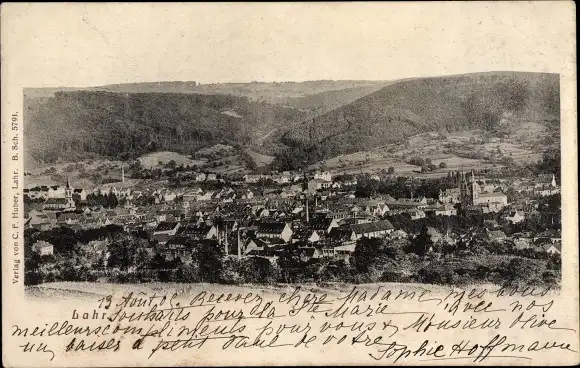 Verlag von C. F. Huber, Lahr. B. Sch. 5791.
13 Aout 02 Recevez chère Madame mes bons
Lahr. souhaits pour la Ste Marie Avec nos
meilleurs compliments pour vous & Monsieur Olive
un baiser à petit Paul de votre
Sophie Hoffmann